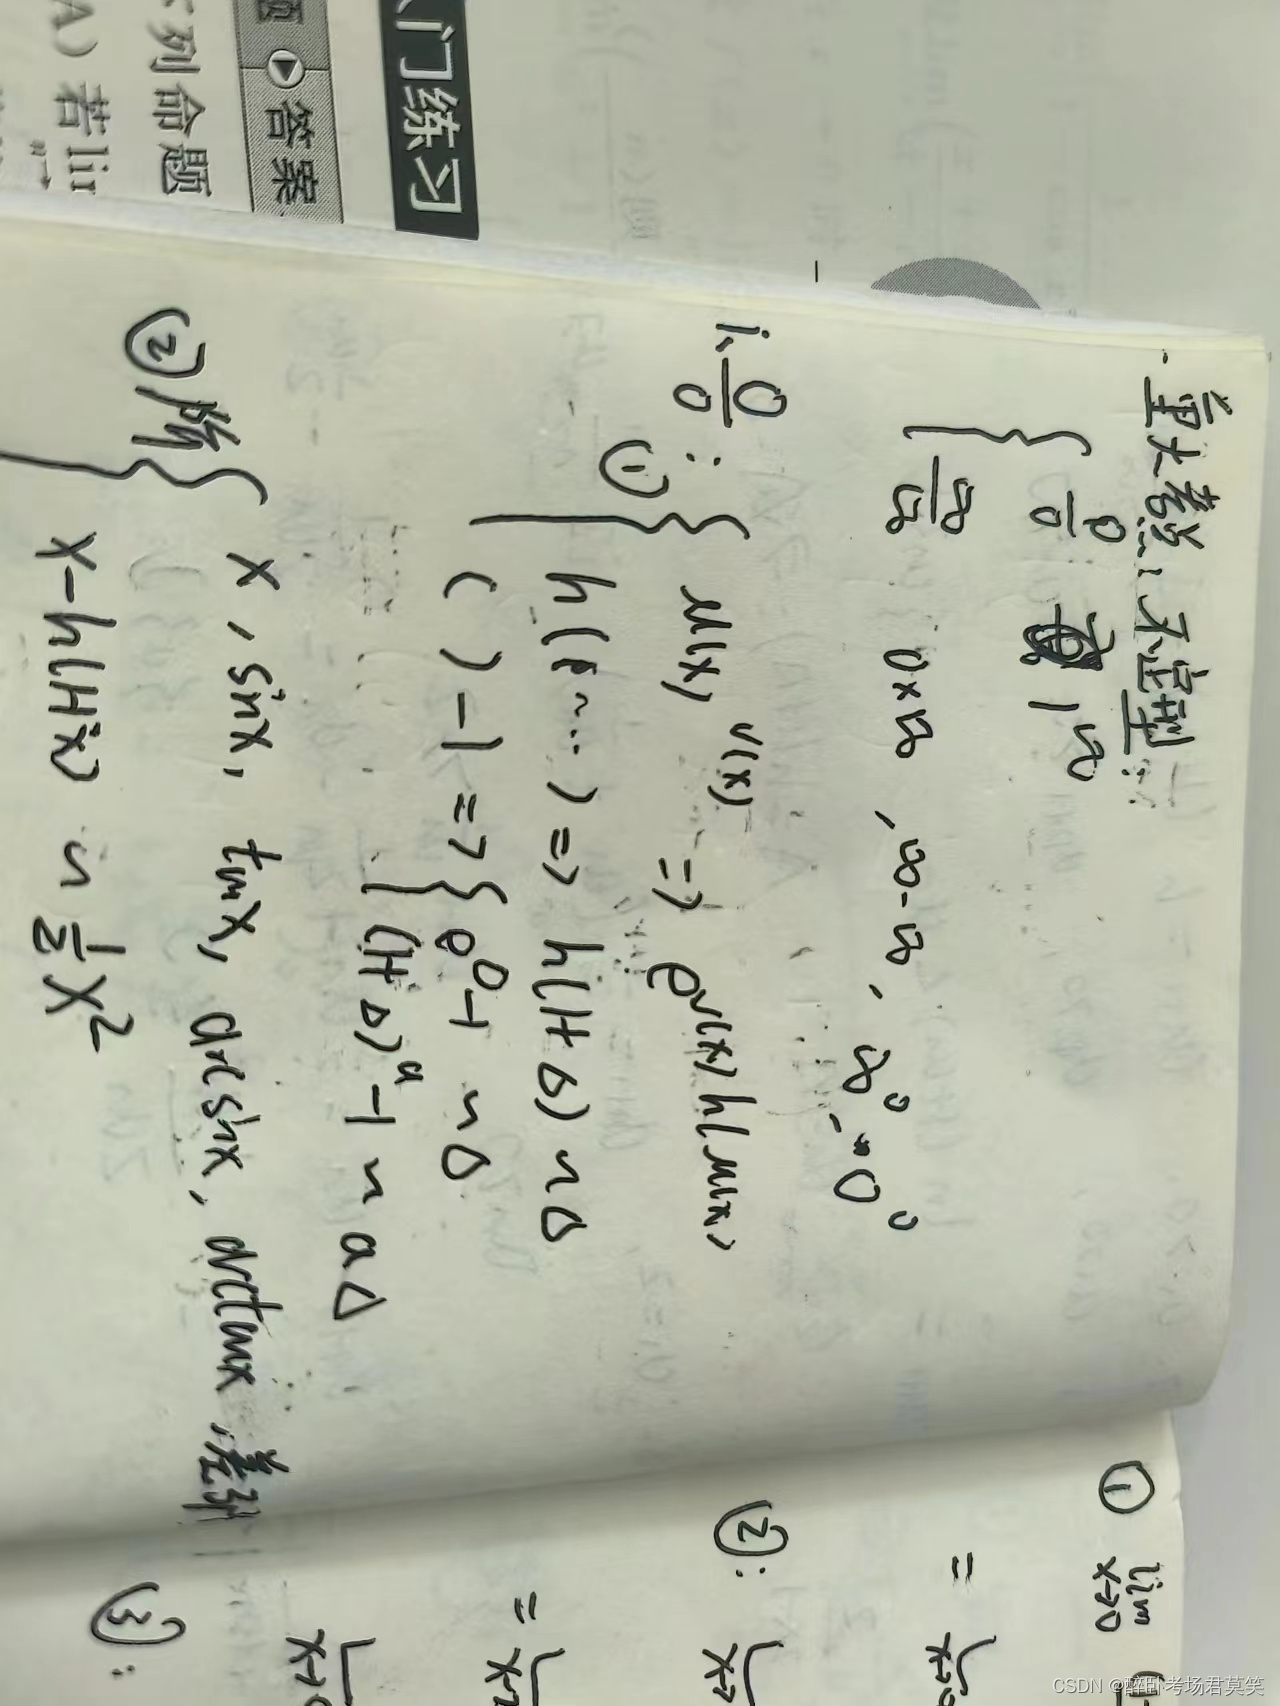 门练习
题 ▶ 答案
列命题
A）若lim
n→
一重大考点：不定型：
{ 0/0 , 1^∞
∞/∞ 0×∞ , ∞-∞ , ∞^0 , 0^0
1、0/0 :
① { u(x)^v(x) => e^v(x)ln u(x)
ln(…) => ln(1+Δ) ~ Δ
( ) - 1 => { e^Δ-1 ~ Δ
(1+Δ)^a - 1 ~ aΔ
② 阶 { x , sinx, tanx, arcsinx, arctanx
x - ln(1+x) ~ 1/2 x^2
① lim x→0
= lim x→0
② : lim x→
= lim x→
lim x→0
③ :
CSDN @醉卧考场君莫笑